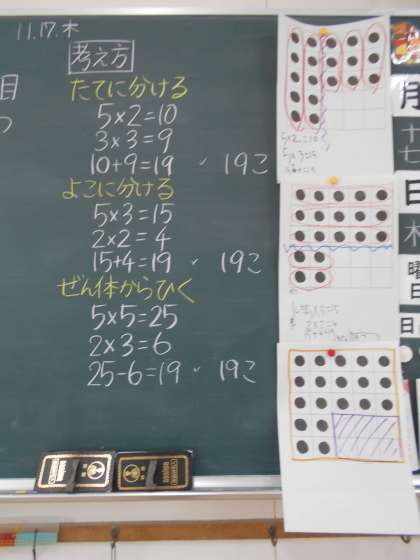 11.17.木
目
つ
考え方
たてに分ける
5×2=10
3×3=9
10+9=19 ✓ 19こ
よこに分ける
5×3=15
2×2=4
15+4=19 ✓ 19こ
ぜん体からひく
5×5=25
2×3=6
25-6=19 ✓ 19こ
5×2=10
月
日
木
曜
日